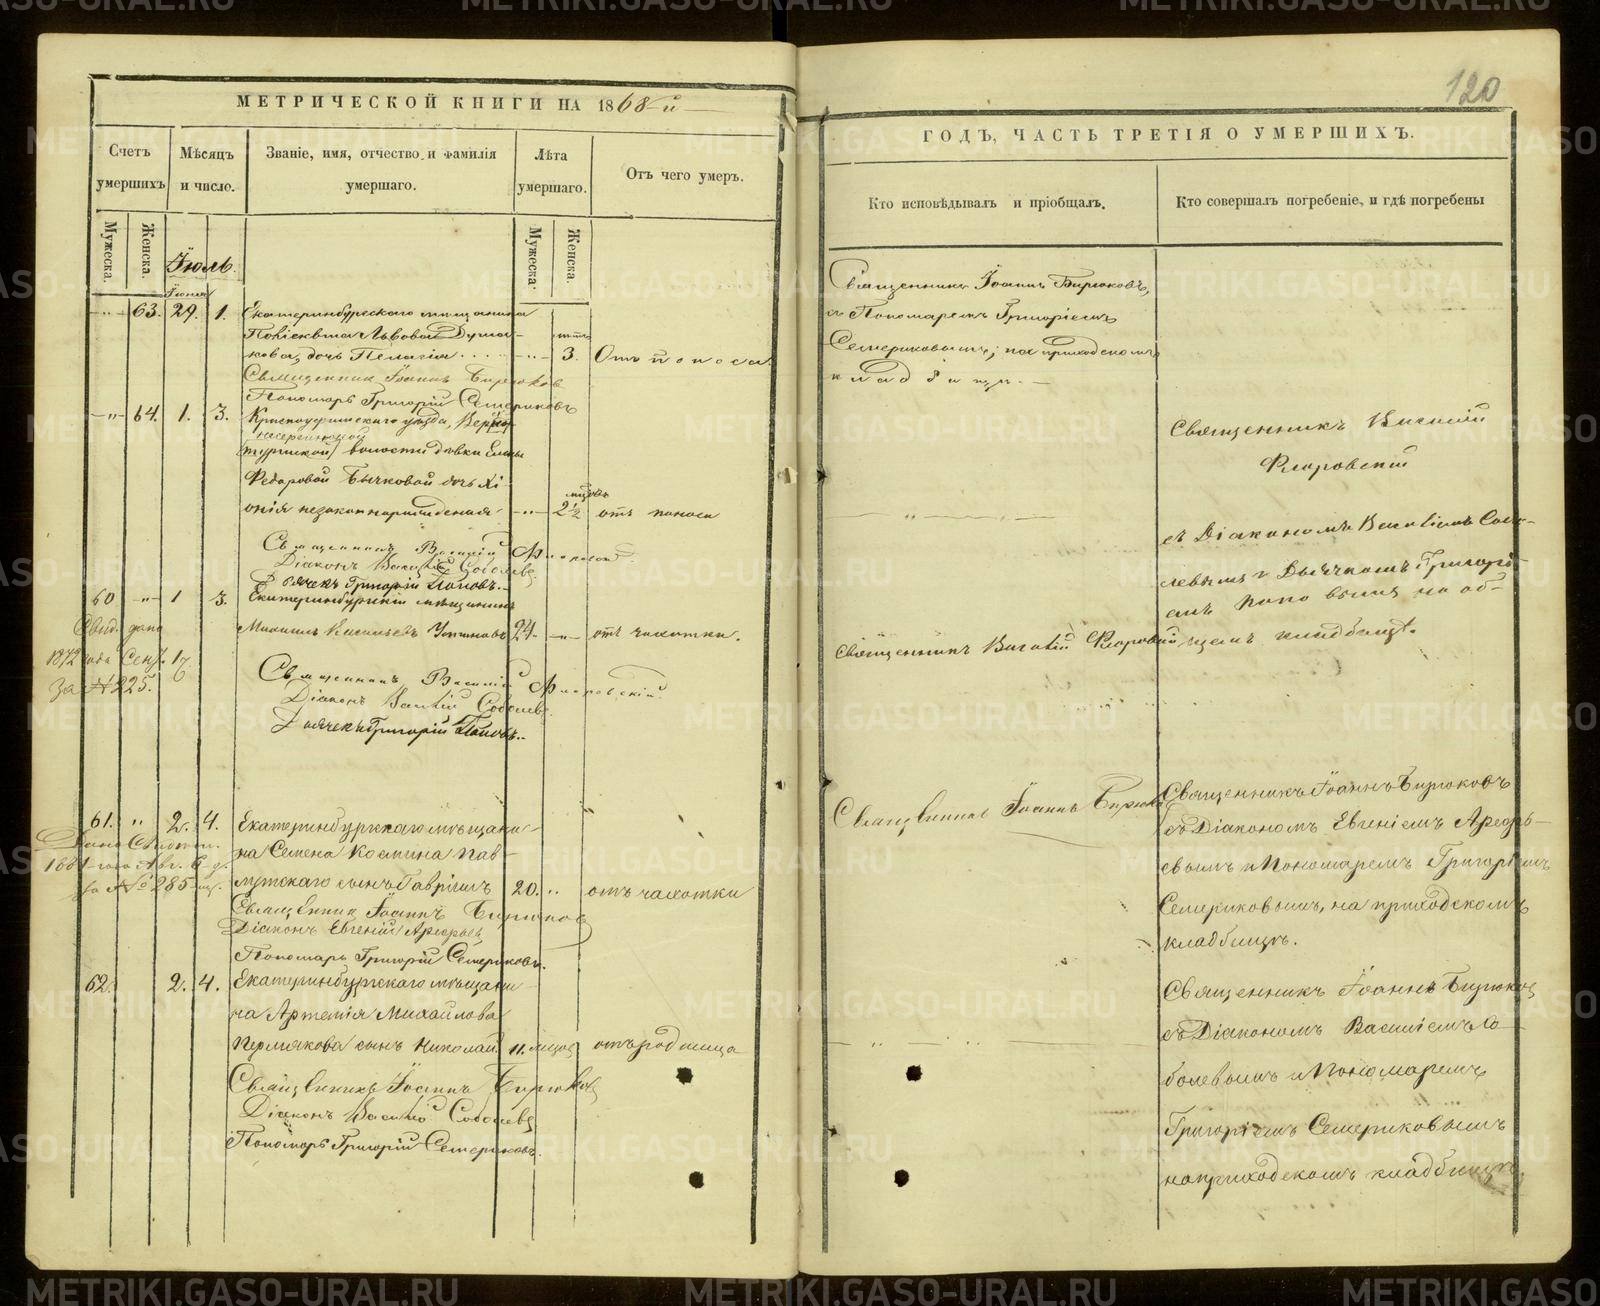 МЕТРИЧЕСКОЙ КНИГИ НА 1868-й
Счетъ умершихъ
Мѣсяцъ и число.
Званіе, имя, отчество и фамилія умершаго.
Лѣта умершаго.
Отъ чего умеръ.
Мужеска.
Женска.
Мужеска.
Женска.
Іюль.
Іюня
63. 29. 1. Екатеринбургскаго мѣщанина
Львова
кова, дочь Пелагія 3. Отъ поноса.
Священникъ Іоаннъ Бирюковъ
Пономарь Григорій Семериковъ
64. 1. 3. Красноуфимскаго уѣзда,
волости дѣвки Елены
Федоровой Бычковой дочь Хі-
онія незаконнорожденная 2½ отъ поноса
Священникъ Василій Флоровскій
Діаконъ Василій Соболевъ
Дьячекъ Григорій Поповъ.
60 1 3. Екатеринбургскій мѣщанинъ
Михаилъ Васильевъ 24. отъ чахотки.
Свид. дано
1872 года Сент. 17
За № 225.
Священникъ Василій Флоровскій
Діаконъ Василій Соболевъ
Дьячекъ Григорій Поповъ.
61. 2. 4. Екатеринбургскаго мѣщани-
на Семена Космина Пав-
лутскаго сынъ Гавріилъ 20. отъ чахотки
Дано
1881 года Авг. 6
за № 285
Священникъ Іоаннъ Бирюковъ
Діаконъ Евгеній Арефьевъ
Пономарь Григорій Семериковъ.
62. 2. 4. Екатеринбургскаго мѣщани-
на Артемія Михайлова
Пермякова сынъ Николай 11. мѣсяц. отъ родимца
Священникъ Іоаннъ Бирюковъ
Діаконъ Василій Соболевъ
Пономарь Григорій Семериковъ.
120
ГОДЪ, ЧАСТЬ ТРЕТІЯ О УМЕРШИХЪ.
Кто исповѣдывалъ и пріобщалъ.
Кто совершалъ погребеніе, и гдѣ погребены
Священникъ Іоаннъ Бирюковъ,
съ Пономаремъ Григоріемъ
Семериковымъ; на приходскомъ
кладбищѣ.
Священникъ Василій
Флоровскій
съ Діакономъ Василіемъ Собо-
левымъ и Дьячкомъ Григорі-
емъ Поповымъ на об-
щемъ кладбищѣ.
Священникъ Василій Флоровскій
Священникъ Іоаннъ Бирюковъ
Священникъ Іоаннъ Бирюковъ
съ Діакономъ Евгеніемъ Арефь-
евымъ и Пономаремъ Григоріемъ
Семериковымъ, на приходскомъ
кладбищѣ.
Священникъ Іоаннъ Бирюковъ
съ Діакономъ Василіемъ Со-
болевымъ и Пономаремъ
Григоріемъ Семериковымъ
на приходскомъ кладбищѣ.
METRIKI.GASO-URAL.RU